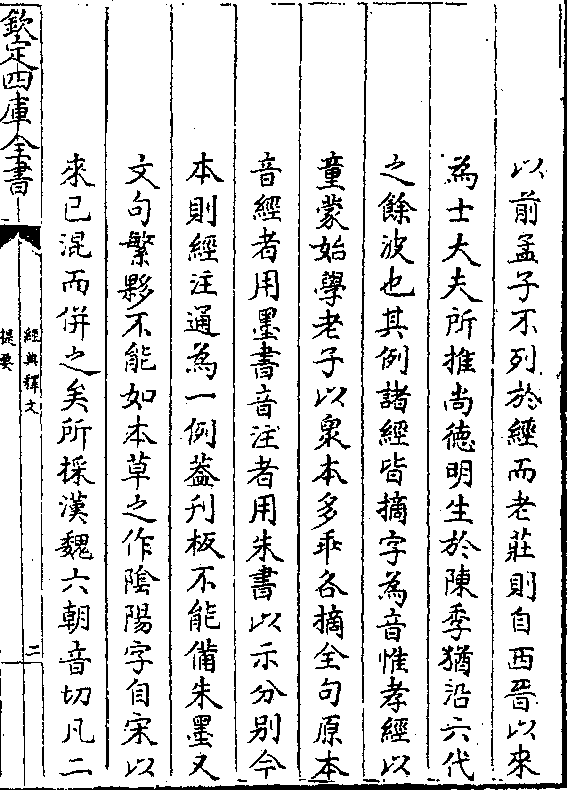 以前孟子不列於經而老莊則自西晉以來
為士大夫所推尚德明生於陳季猶沿六代
之餘波也其例諸經皆摘字為音惟孝經以
童蒙始學老子以衆本多乖各摘全句原本
音經者用墨書音注者用朱書以示分别今
本則經注通為一例葢刋板不能備朱墨又
文句繁夥不能如本草之作陰陽字自宋以
來已混而併之矣所採漢魏六朝音切凡二
欽定四庫全書
經典釋文
提要
二